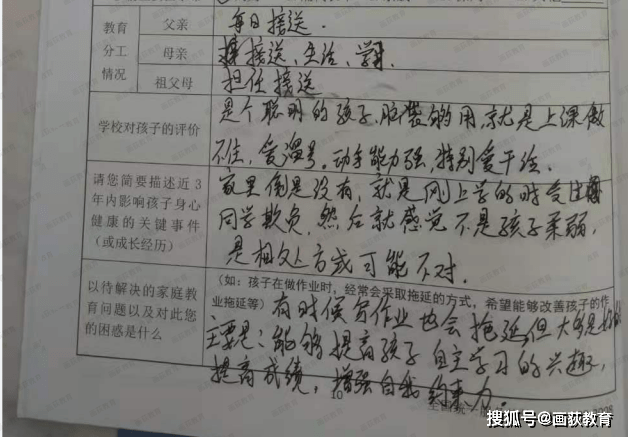 教育分工情况
父亲 每日接送.
母亲 接送、生活、学习.
祖父母 担任接送
学校对孩子的评价
是个聪明的孩子,脑袋够用,就是上课做
不住,爱溜号。动手能力强,特别爱干净.
请您简要描述近3
年内影响孩子身心
健康的关键事件
(或成长经历)
家里倒是没有,就是刚上学的时受
同学欺负,然后就感觉不是孩子柔弱,
是相处方式可能不对.
以待解决的家庭教
育问题以及对此您
的困惑是什么
(如:孩子在做作业时,经常会采取拖延的方式,希望能够改善孩子的作
业拖延等)
有时候写作业也会拖延,但大多是
主要是:能够提高孩子自主学习的兴趣,
提高成绩,增强自我约束力。
搜狐号@画荻教育